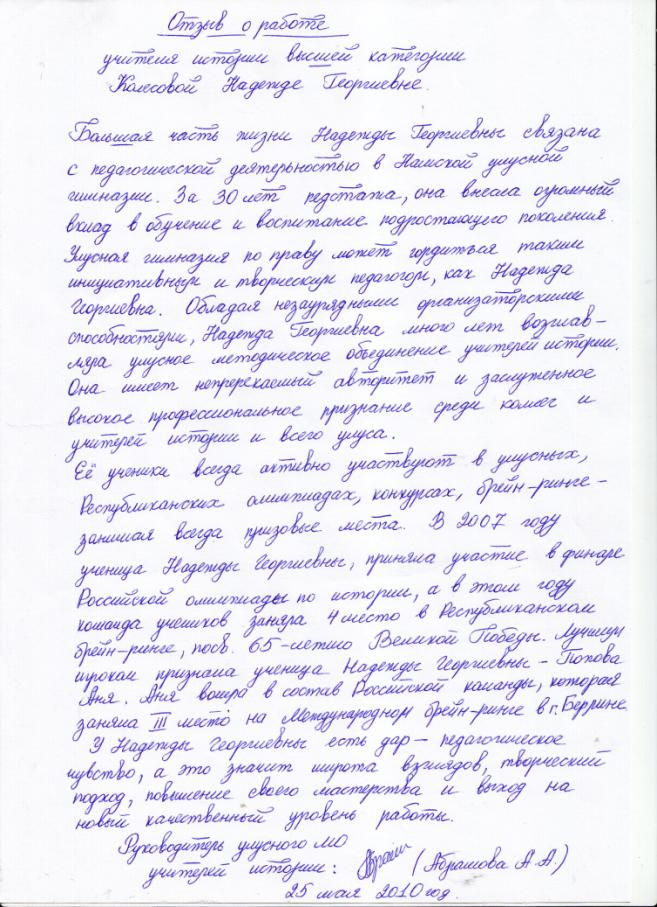 Отзыв о работе
учителя истории высшей категории
Колесовой Надежде Георгиевне.
Большая часть жизни Надежды Георгиевны связана
с педагогической деятельностью в Намской улусной
гимназии. За 30 лет педстажа, она внесла огромный
вклад в обучение и воспитание подростающего поколения.
Улусная гимназия по праву может гордиться таким
инициативным и творческим педагогом, как Надежда
Георгиевна. Обладая незаурядными организаторскими
способностями, Надежда Георгиевна много лет возглав-
ляла улусное методическое объединение учителей истории.
Она имеет непререкаемый авторитет и заслуженное
высокое профессиональное признание среди коллег и
учителей истории и всего улуса.
Её ученики всегда активно участвуют в улусных,
Республиканских олимпиадах, конкурсах, брейн-ринге -
занимая всегда призовые места. В 2007 году
ученица Надежды Георгиевны, приняла участие в финале
Российской олимпиады по истории, а в этом году
команда учеников заняла 4 место в Республиканском
брейн-ринге, посв. 65-летию Великой Победы. Лучшим
игроком признана ученица Надежды Георгиевны - Попова
Аня. Аня вошла в состав Российской команды, которая
заняла III место на Международном брейн-ринге в г. Берлине
У Надежды Георгиевны есть дар - педагогическое
чувство, а это значит широта взглядов, творческий
подход, повышение своего мастерства и выход на
новый качественный уровень работы.
Руководитель улусного МО
учителей истории: (Абрамова А.А.)
25 мая 2010 год.